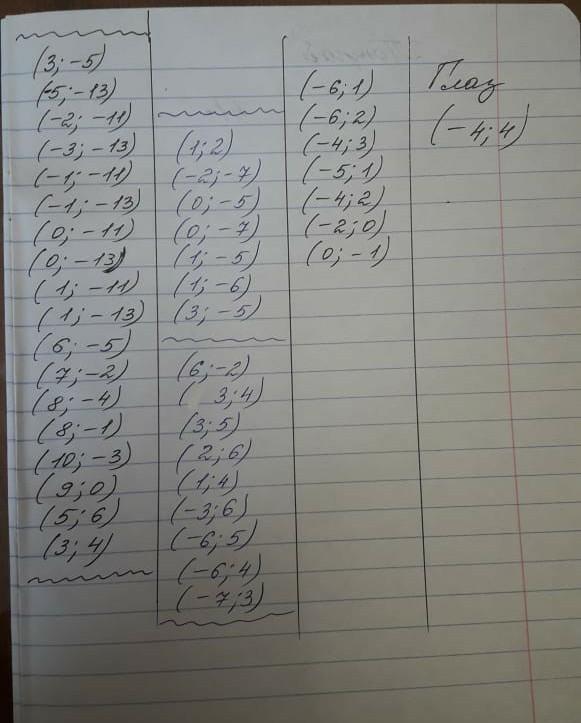 (3; -5)
(-5; -13)
(-2; -11)
(-3; -13)
(-1; -11)
(-1; -13)
(0; -11)
(0; -13)
(1; -11)
(1; -13)
(6; -5)
(7; -2)
(8; -4)
(8; -1)
(10; -3)
(9; 0)
(5; 6)
(3; 4)
(1; 2)
(-2; -7)
(0; -5)
(0; -7)
(1; -5)
(1; -6)
(3; -5)
(6; -2)
( 3; 4)
(3; 5)
(2; 6)
(1; 4)
(-3; 6)
(-6; 5)
(-6; 4)
(-7; 3)
(-6; 1)
(-6; 2)
(-4; 3)
(-5; 1)
(-4; 2)
(-2; 0)
(0; -1)
Глаз
(-4; 4)